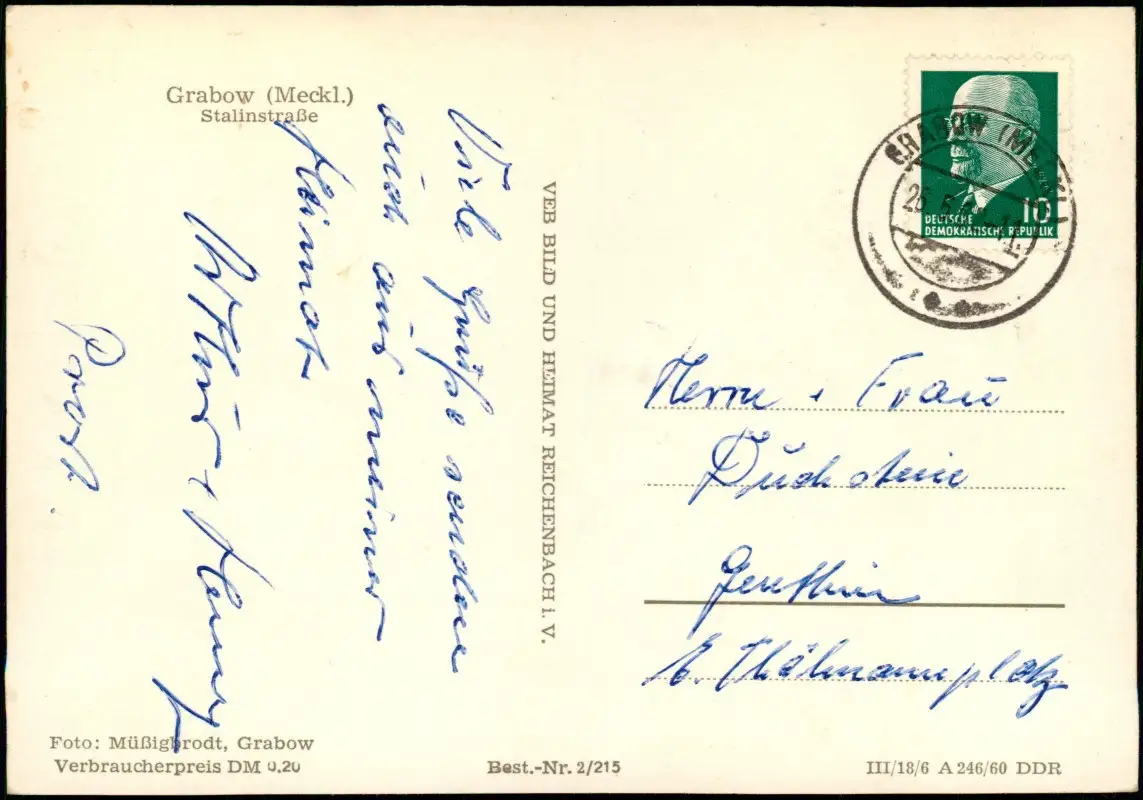 Grabow (Meckl.)
Stalinstraße
Viele Grüße senden
euch aus meiner
Heimat
Arthur + Henny
VEB BILD UND HEIMAT REICHENBACH i. V.
GRABOW (MECKL)
10
DEUTSCHE
DEMOKRATISCHE REPUBLIK
Herrn + Frau
Duchstein
Genthin
E. Thälmannplatz
Foto: Müßigbrodt, Grabow
Verbraucherpreis DM 0,20
Best.-Nr. 2/215
III/18/6 A 246/60 DDR